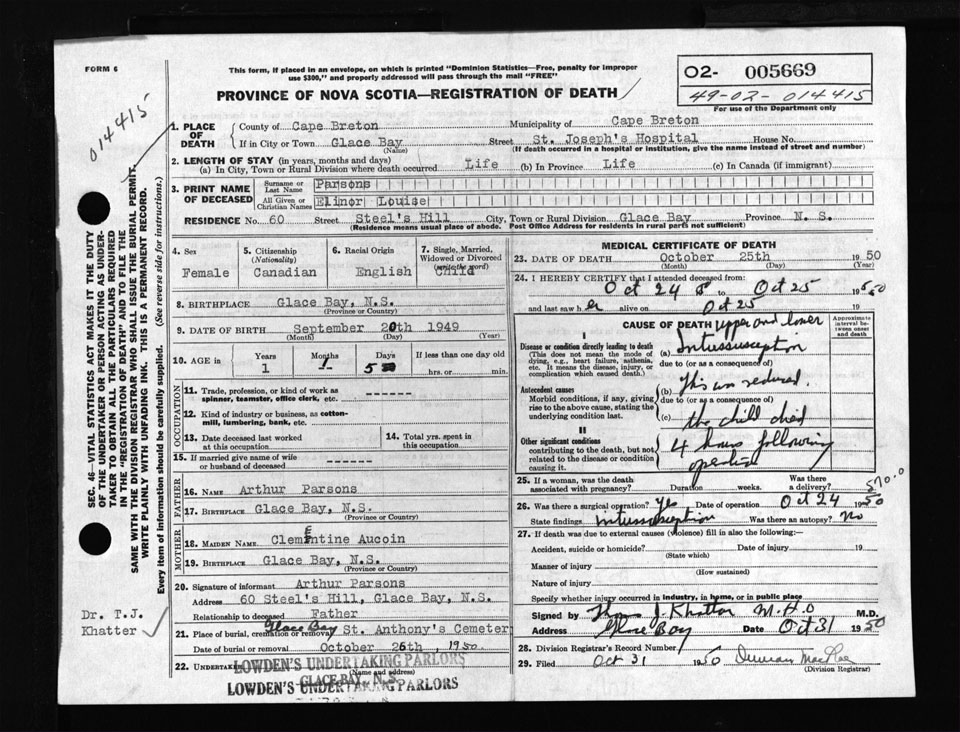 FORM 6
This form, if placed in an envelope, on which is printed "Dominion Statistics—Free, penalty for improper
use $300," and properly addressed will pass through the mail "FREE"
PROVINCE OF NOVA SCOTIA—REGISTRATION OF DEATH
O2- 005669
49-02-014415
For use of the Department only
014415
1. PLACE OF DEATH
County of Cape Breton Municipality of Cape Breton
If in City or Town Glace Bay Street St. Joseph's Hospital House No.
(Name) (If death occurred in a hospital or institution, give the name instead of street and number)
2. LENGTH OF STAY (in years, months and days)
(a) In City, Town or Rural Division where death occurred Life (b) In Province Life (c) In Canada (if immigrant)
3. PRINT NAME OF DECEASED
Surname or Last Name Parsons
All Given or Christian Names Elinor Louise
RESIDENCE No. 60 Street Steel's Hill City, Town or Rural Division Glace Bay Province N. S.
(Residence means usual place of abode. Post Office Address for residents in rural parts not sufficient)
4. Sex
Female
5. Citizenship
(Nationality)
Canadian
6. Racial Origin
English
7. Single, Married, Widowed or Divorced
(write the word)
Child
8. BIRTHPLACE Glace Bay, N.S.
(Province or Country)
9. DATE OF BIRTH September 20th 1949
(Month) (Day) (Year)
10. AGE in
Years Months Days If less than one day old
1 1 5 hrs. or min.
OCCUPATION
11. Trade, profession, or kind of work as
spinner, teamster, office clerk, etc. ------
12. Kind of industry or business, as cotton-
mill, lumbering, bank, etc.
13. Date deceased last worked
at this occupation
14. Total yrs. spent in
this occupation
15. If married give name of wife
or husband of deceased ------
FATHER
16. NAME Arthur Parsons
17. BIRTHPLACE Glace Bay, N.S.
(Province or Country)
MOTHER
18. MAIDEN NAME. Clementine Aucoin
19. BIRTHPLACE Glace Bay, N.S.
(Province or Country)
20. Signature of informant Arthur Parsons
Address 60 Steel's Hill, Glace Bay, N.S.
Relationship to deceased Father
21. Place of burial, cremation or removal Glace Bay St. Anthony's Cemeter
Date of burial or removal October 26th, 1950.
22. UNDERTAKER
(Name and address)
LOWDEN'S UNDERTAKING PARLORS
GLACE BAY, N.S.
LOWDEN'S UNDERTAKING PARLORS
MEDICAL CERTIFICATE OF DEATH
23. DATE OF DEATH October 25th 1950
(Month) (Day) (Year)
24. I HEREBY CERTIFY that I attended deceased from:
Oct 24 Oct 25 1950
and last saw her alive on Oct 25 19
CAUSE OF DEATH
Approximate interval between onset and death
Disease or condition directly leading to death
(This does not mean the mode of dying, e.g., heart failure, asthenia, etc. It means the disease, injury, or complication which caused death.)
upper and lower
(a) Intussusception
due to (or as a consequence of)
Antecedent causes
Morbid conditions, if any, giving rise to the above cause, stating the underlying condition last.
(b) This un reduced.
due to (or as a consequence of)
(c) the child died
II
Other significant conditions
contributing to the death, but not related to the disease or condition causing it.
4 hours following
operation
25. If a woman, was the death
associated with pregnancy? Duration weeks. Was there a delivery?
570.0
26. Was there a surgical operation? Yes Date of operation Oct 24 1950
State findings Intussusception Was there an autopsy? No
27. If death was due to external causes (violence) fill in also the following:—
Accident, suicide or homicide? Date of injury 19
(State which)
Manner of injury
(How sustained)
Nature of injury
Specify whether injury occurred in industry, in home, or in public place
Signed by Thos J. Khattar M.H.O M.D.
Address Glace Bay Date Oct 31 1950
28. Division Registrar's Record Number
29. Filed Oct 31 1950 Duncan MacRae
(Division Registrar)
SEC. 46—VITAL STATISTICS ACT MAKES IT THE DUTY
OF THE UNDERTAKER OR PERSON ACTING AS UNDER-
TAKER TO OBTAIN ALL THE PARTICULARS REQUIRED
IN THE "REGISTRATION OF DEATH" AND TO FILE THE
SAME WITH THE DIVISION REGISTRAR WHO SHALL ISSUE THE BURIAL PERMIT.
WRITE PLAINLY WITH UNFADING INK. THIS IS A PERMANENT RECORD.
Every item of information should be carefully supplied. (See reverse side for instructions.)
Dr. T.J.
Khatter